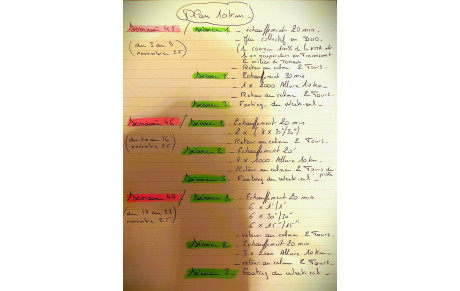 Plan 10km
Semaine 45 / Séance 1 - échauffement 20 min
(du 3 au 9 - Jeu collectif en DUO.
novembre 25) (1 coureur tours de piste et
1 en récupération en traversant
le milieu de terrain
- Retour au calme 2 Tours.
Séance 2 - Echauffement 30 min
- 1 x 2000 Allure 10km
- Retour au calme 2 Tours.
Séance 3 - Footing du Week-end
Semaine 46 / Séance 1 - Echauffement 20 min
- 2 x ( 8 x 30"/30")
novembre 25) - Retour au calme 2 Tours.
Séance 2 - Echauffement 20'
- 4 x 1000 Allure 10km
- Retour au calme 2 Tours de
piste
Séance 3 - Footing du Week-end
Semaine 47 / Séance 1 - Echauffement 20 min
(du 17 au 23 6 x 1'/1'
novembre 25) 6 x 30"/30"
6 x 15"/15"
- retour au calme 2 Tours.
Séance 2 - Echauffement 20 min
- 3 x 2000 Allure 10km
- retour au calme 2 Tours
Séance 3 - Footing du Week-end